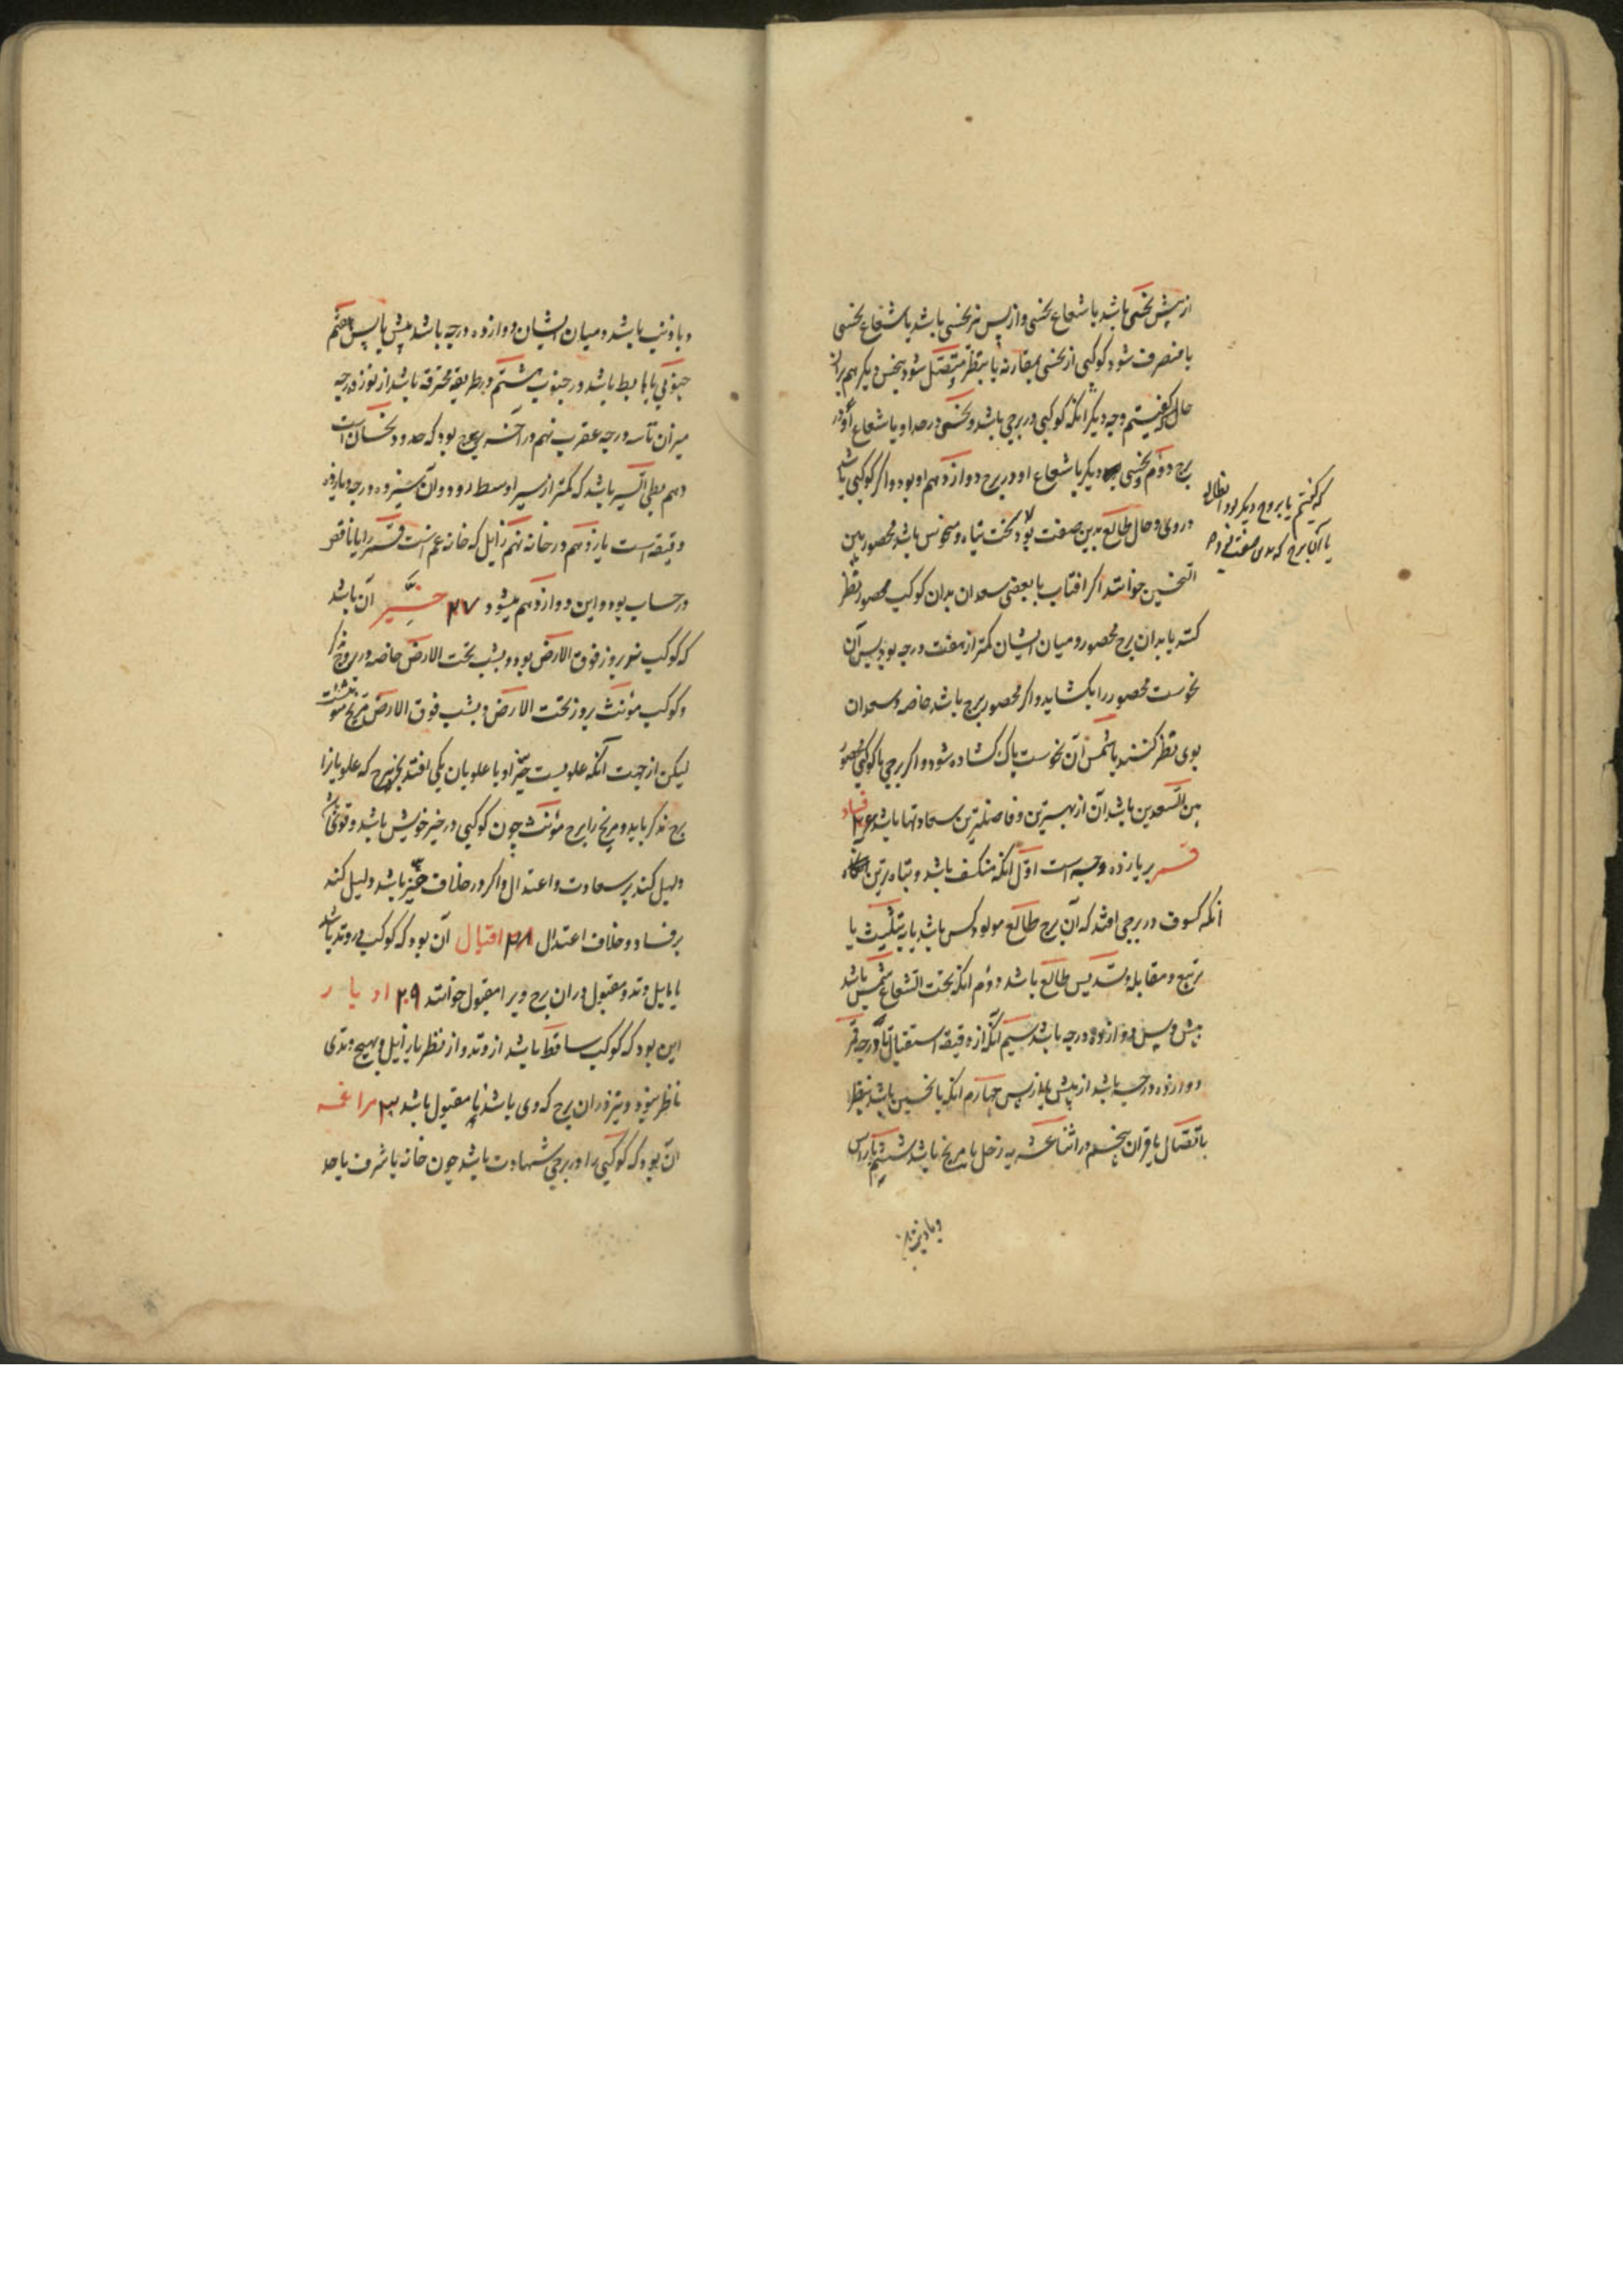 از پیش نحسی باشد یا شعاع نحسی و از پس نیز نحسی باشد یا شعاع نحسی
یا منصرف شود کوکبی از نحسی بمقارنه یا بنظر و متصل شود بنحس دیگر هم بران
حال که گفتیم وجه دیگر انکه کوکبی در برجی باشد و نحسی در حد او یا شعاع او در
برج دوم و نحسی دیگر یا شعاع او در برج دوازدهم او بود و اگر کوکبی باشد
در وی و حال طالع بدین صفت بود سخت تباه و منحوس باشد محصور بین
النحسین خوانند اگر افتاب یا بعضی سعدان بدان کوکب محصور نظر
کنند یا بدان برج محصور و میان ایشان کمتر از هفت درجه بود پس آن
نحوست محصور را بکشاید و اگر محصور برج باشد خاصه و سعدان
بوی نظر کنند یا شمس آن نحوست پاک کشاده شود و اگر برجی یا کوکبی محصور
بین السعدین باشد آن از بهترین و فاضلترین سعادتها باشد ۲۶ فساد
قمر بر یازده وجه است اول انکه منکسف باشد و تباه ترین
انکه کسوف در برجی افتد که آن برج طالع مولود کس باشد یا بر تثلیث یا
تربیع و مقابله و تسدیس طالع باشد دوم انکه تحت الشعاع شمس باشد
پیش و پس دوازده درجه باشد سیم انکه از دقیقه استقبال تا درجه قمر
دوازده درجه باشد از پیش یا از پس چهارم انکه با نحسین باشد بنظر
باتصال یا قران پنجم در اثنا عشریه زحل یا مریخ باشد ششم با راس
که گفتیم یا بروج دیگر بود
یا آن برج که بدین صفت
و با ذنب
و یا ذنب باشد و میان ایشان دوازده درجه باشد پیش یا پس هفتم
جنوبی یا هابط باشد در جنوب هشتم در طریقه محترقه باشد از نوزده درجه
میزان تا سه درجه عقرب نهم در آخر برج بود که حدود نحسان است
دهم بطی السیر باشد که کمتر از سیر اوسط رود و ان سیزده درجه و یازده
دقیقه است یازدهم در خانه نهم زایل که خانه غم است قمر را یا ناقص
در حساب بود و این دوازدهم میشود ۲۷ حیز آن باشد
که کوکب نر بروز فوق الارض بود و بشب تحت الارض خاصه در بروج نر
و کوکب مؤنث بروز تحت الارض و بشب فوق الارض مریخ مؤنث است
لیکن از جهت آنکه علویست حیز او با علویان یکی افتد بجز برج که علویانرا
برج مذکر باید و مریخ را برج مؤنث چون کوکبی در حیز خویش باشد و قوی باشد
دلیل کند بر سعادت و اعتدال و اگر در خلاف حیز باشد دلیل کند
بر فساد و خلاف اعتدال ۲۸ اقبال آن بود که کوکب در وتد باشد
یا مایل وتد و مقبول در ان برج ویرا مقبول خوانند ۲۹ ادبار
این بود که کوکب ساقط باشد از وتد و از نظر یا زایل و بهیچ وتدی
ناظر نبود و نیز در ان برج که وی باشد نا مقبول باشد ۳۰ مراغمه
آن بود که کوکبی را در برجی شهادت باشد چون خانه یا شرف یا حد